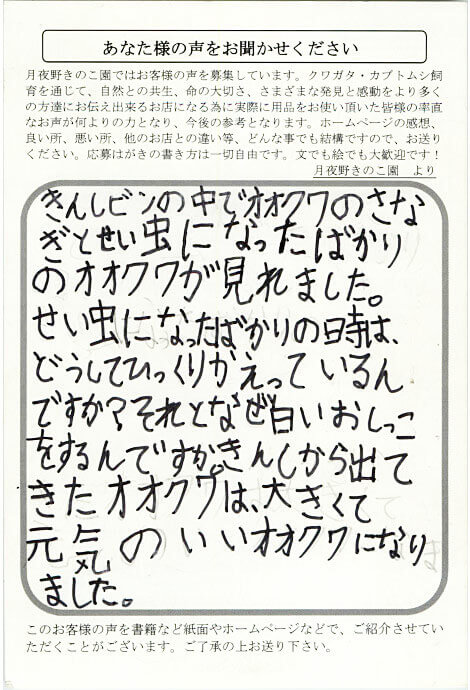 あなた様の声をお聞かせください
月夜野きのこ園ではお客様の声を募集しています。クワガタ・カブトムシ飼
育を通じて、自然との共生、命の大切さ、さまざまな発見と感動をより多く
の方達にお伝え出来るお店になる為に実際に用品をお使い頂いた皆様の率直
なお声が何よりの力となり、今後の参考となります。ホームページの感想、
良い所、悪い所、他のお店との違い等、どんな事でも結構ですので、お送り
ください。応募はがきの書き方は一切自由です。文でも絵でも大歓迎です！
月夜野きのこ園　より
きんしビンの中でオオクワのさな
ぎとせい虫になったばかり
のオオクワが見れました。
せい虫になったばかりの時は、
どうしてひっくりかえっているん
ですか？それとなぜ白いおしっこ
をするんですか。きんしから出て
きたオオクワは、大きくて
元気のいいオオクワになり
ました。
このお客様の声を書籍など紙面やホームページなどで、ご紹介させてい
ただくことがございます。ご了承の上お送り下さい。